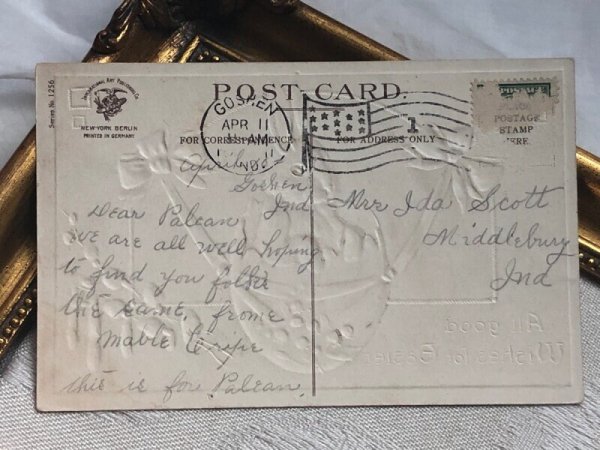 Series No. 1256
INTERNATIONAL ART PUBLISHING CO.
NEW YORK BERLIN
PRINTED IN GERMANY
POST CARD.
FOR CORRESPONDENCE
FOR ADDRESS ONLY
POSTAGE
STAMP
HERE.
GOSHEN
APR 11
AM
IND.
1
April
Goshen
Ind
Dear Palean
we are all well hoping
to find you folks
the same, frome
Mable Cripe
this is for Palean.
Mrs Ida Scott
Middlebury
Ind
All good
Wishes for Easter